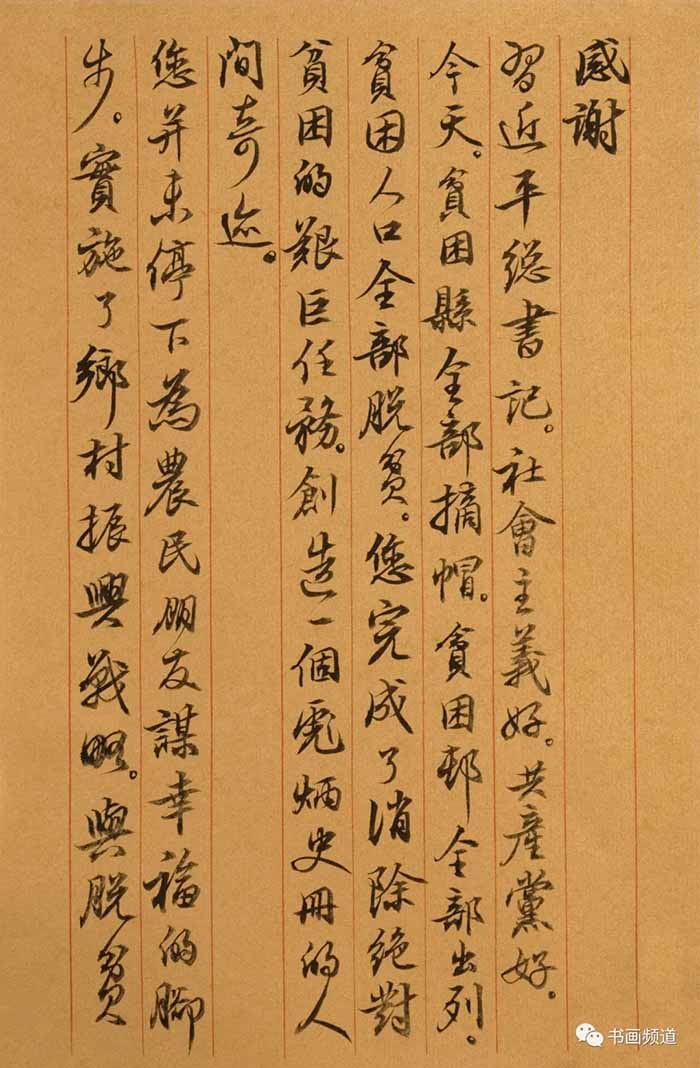 感謝
習近平総書记。社會主義好。共産黨好。
今天。貧困縣全部摘帽。貧困邨全部出列。
貧困人口全部脱貧。您完成了消除绝對
貧困的艱巨任務。創造一個彪炳史冊的人
间奇迹。
您并未停下為農民朋友謀幸福的腳
步。實施了鄉村振興战略。與脱貧
书画频道